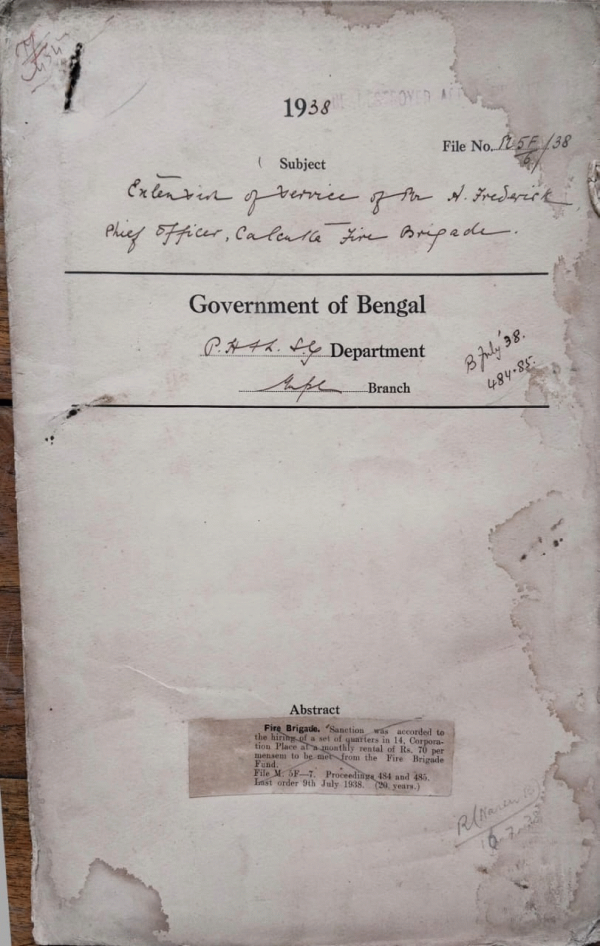 1938
File No. M 5F/6 /38
Subject
Extension of service of Mr H. Frederick
Chief Officer, Calcutta Fire Brigade.
Government of Bengal
P. H & L. S. G Department
Branch
B July '38.
484-85.
Abstract
Fire Brigade. Sanction was accorded to
the hiring of a set of quarters in 14, Corpora-
tion Place at a monthly rental of Rs. 70 per
mensem to be met from the Fire Brigade
Fund.
File M. 5F—7. Proceedings 484 and 485.
Last order 9th July 1938. (20 years.)